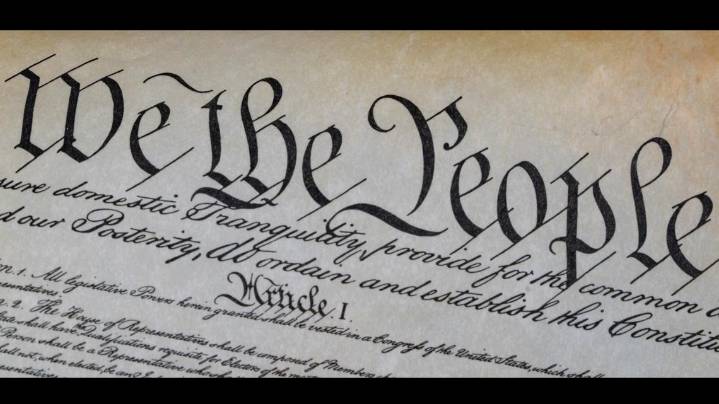 We the People
sure domestic Tranquility, provide for the common
d our Posterity, do ordain and establish this Constitu
Article I.
n 1. All legislative Powers herein granted shall be vested in a Congress of the United States, which shall
n 2. The House of Representatives shall be composed of Members
State shall have the Qualifications requisite for Electors of the most
Person shall be a Representative who sh